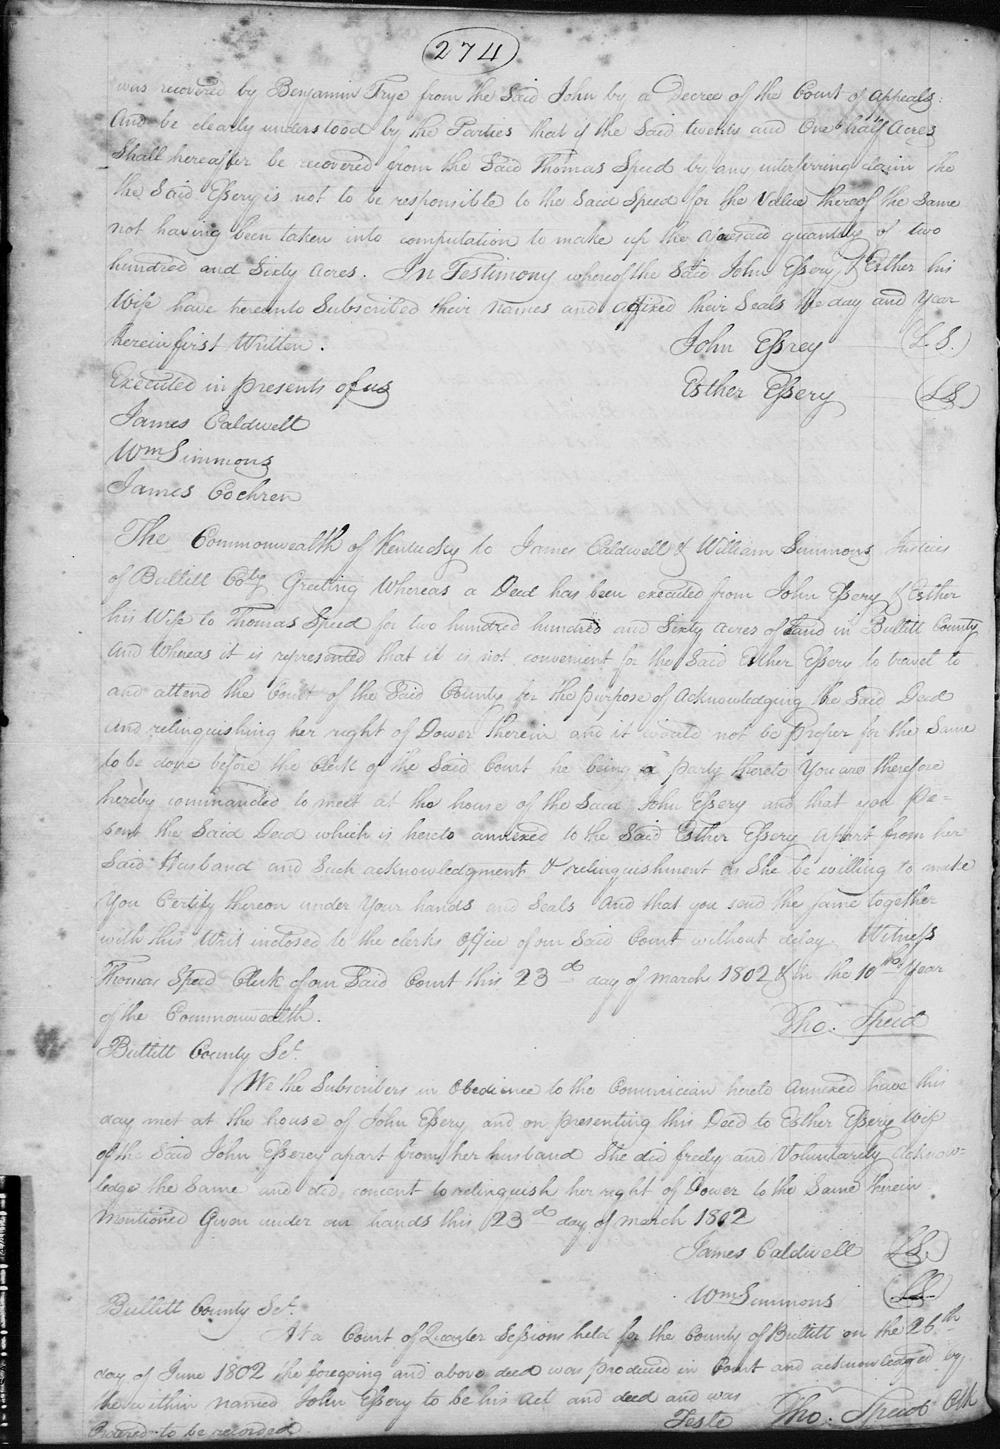 274
was recovered by Benjamin Frye from the Said John by a Decree of the Court of Appeals:
And be clearly understood by the Parties that if the Said twenty and One half Acres
Shall hereafter be recovered from the Said Thomas Speed by any interferring claim the
the Said Essery is not to be responsible to the Said Speed for the Value thereof the Same
not having been taken into computation to make up the aforesaid quantity of two
hundred and Sixty Acres. In Testimony whereof the Said John Essery & Esther his
Wife have hereunto Subscribed their Names and affixed their Seals the day and Year
herein first Written.
John Essrey (L.S.)
Executed in presents of us
Esther Essery (LS)
James Caldwell
Wm Simmons
James Cochren
The Commonwealth of Kentucky to James Caldwell & William Simmons Justices
of Bullitt Coty. Greeting Whereas a Deed has been executed from John Essery & Esther
his Wife to Thomas Speed for two hundred hundred and Sixty Acres of Land in Bullitt County
And Whereas it is represented that it is not convenient for the Said Esther Essery to travel to
and attend the Court of the Said County for the purpose of Acknowledging the Said Deed
and relinquishing her right of Dower therein and it would not be Proper for the Same
to be done before the Clerk of the Said Court he being a party thereto You are therefore
hereby commanded to meet at the house of the Said John Essery and that you Pe=
sent the Said Deed which is hereto annexed to the Said Esther Essery Apart from her
Said Husband and Such acknowledgment & relinquishment as She be willing to make
You Certify thereon under Your hands and Seals And that you send the same together
with this Writ inclosed to the clerks Office of our Said Court without delay. Witness
Thomas Speed Clerk of our Said Court this 23d day of march 1802 & in the 10th Year
of the Commonwealth.
Tho. Speed
Bullitt County Sct.
We the Subscribers in Obedience to the Commission hereto Annexed have this
day met at the house of John Essery and on presenting this Deed to Esther Essery wife
of the Said John Esserey apart from her husband She did freely and Voluntarily Acknow=
ledge the Same and did consent to relinquish her right of Dower to the Same therein
Mentioned Given under our hands this 23d day of march 1802
James Caldwell (LS.)
Wm Simmons (LS)
Bullitt County Sct.
At a Court of Quarter Sessions held for the County of Bullitt on the 26th
day of June 1802 the foregoing and above deed was produced in Court and acknowledged by
the within named John Essery to be his Act and deed and was
Teste Tho. Speed Clk
Ordered to be recorded